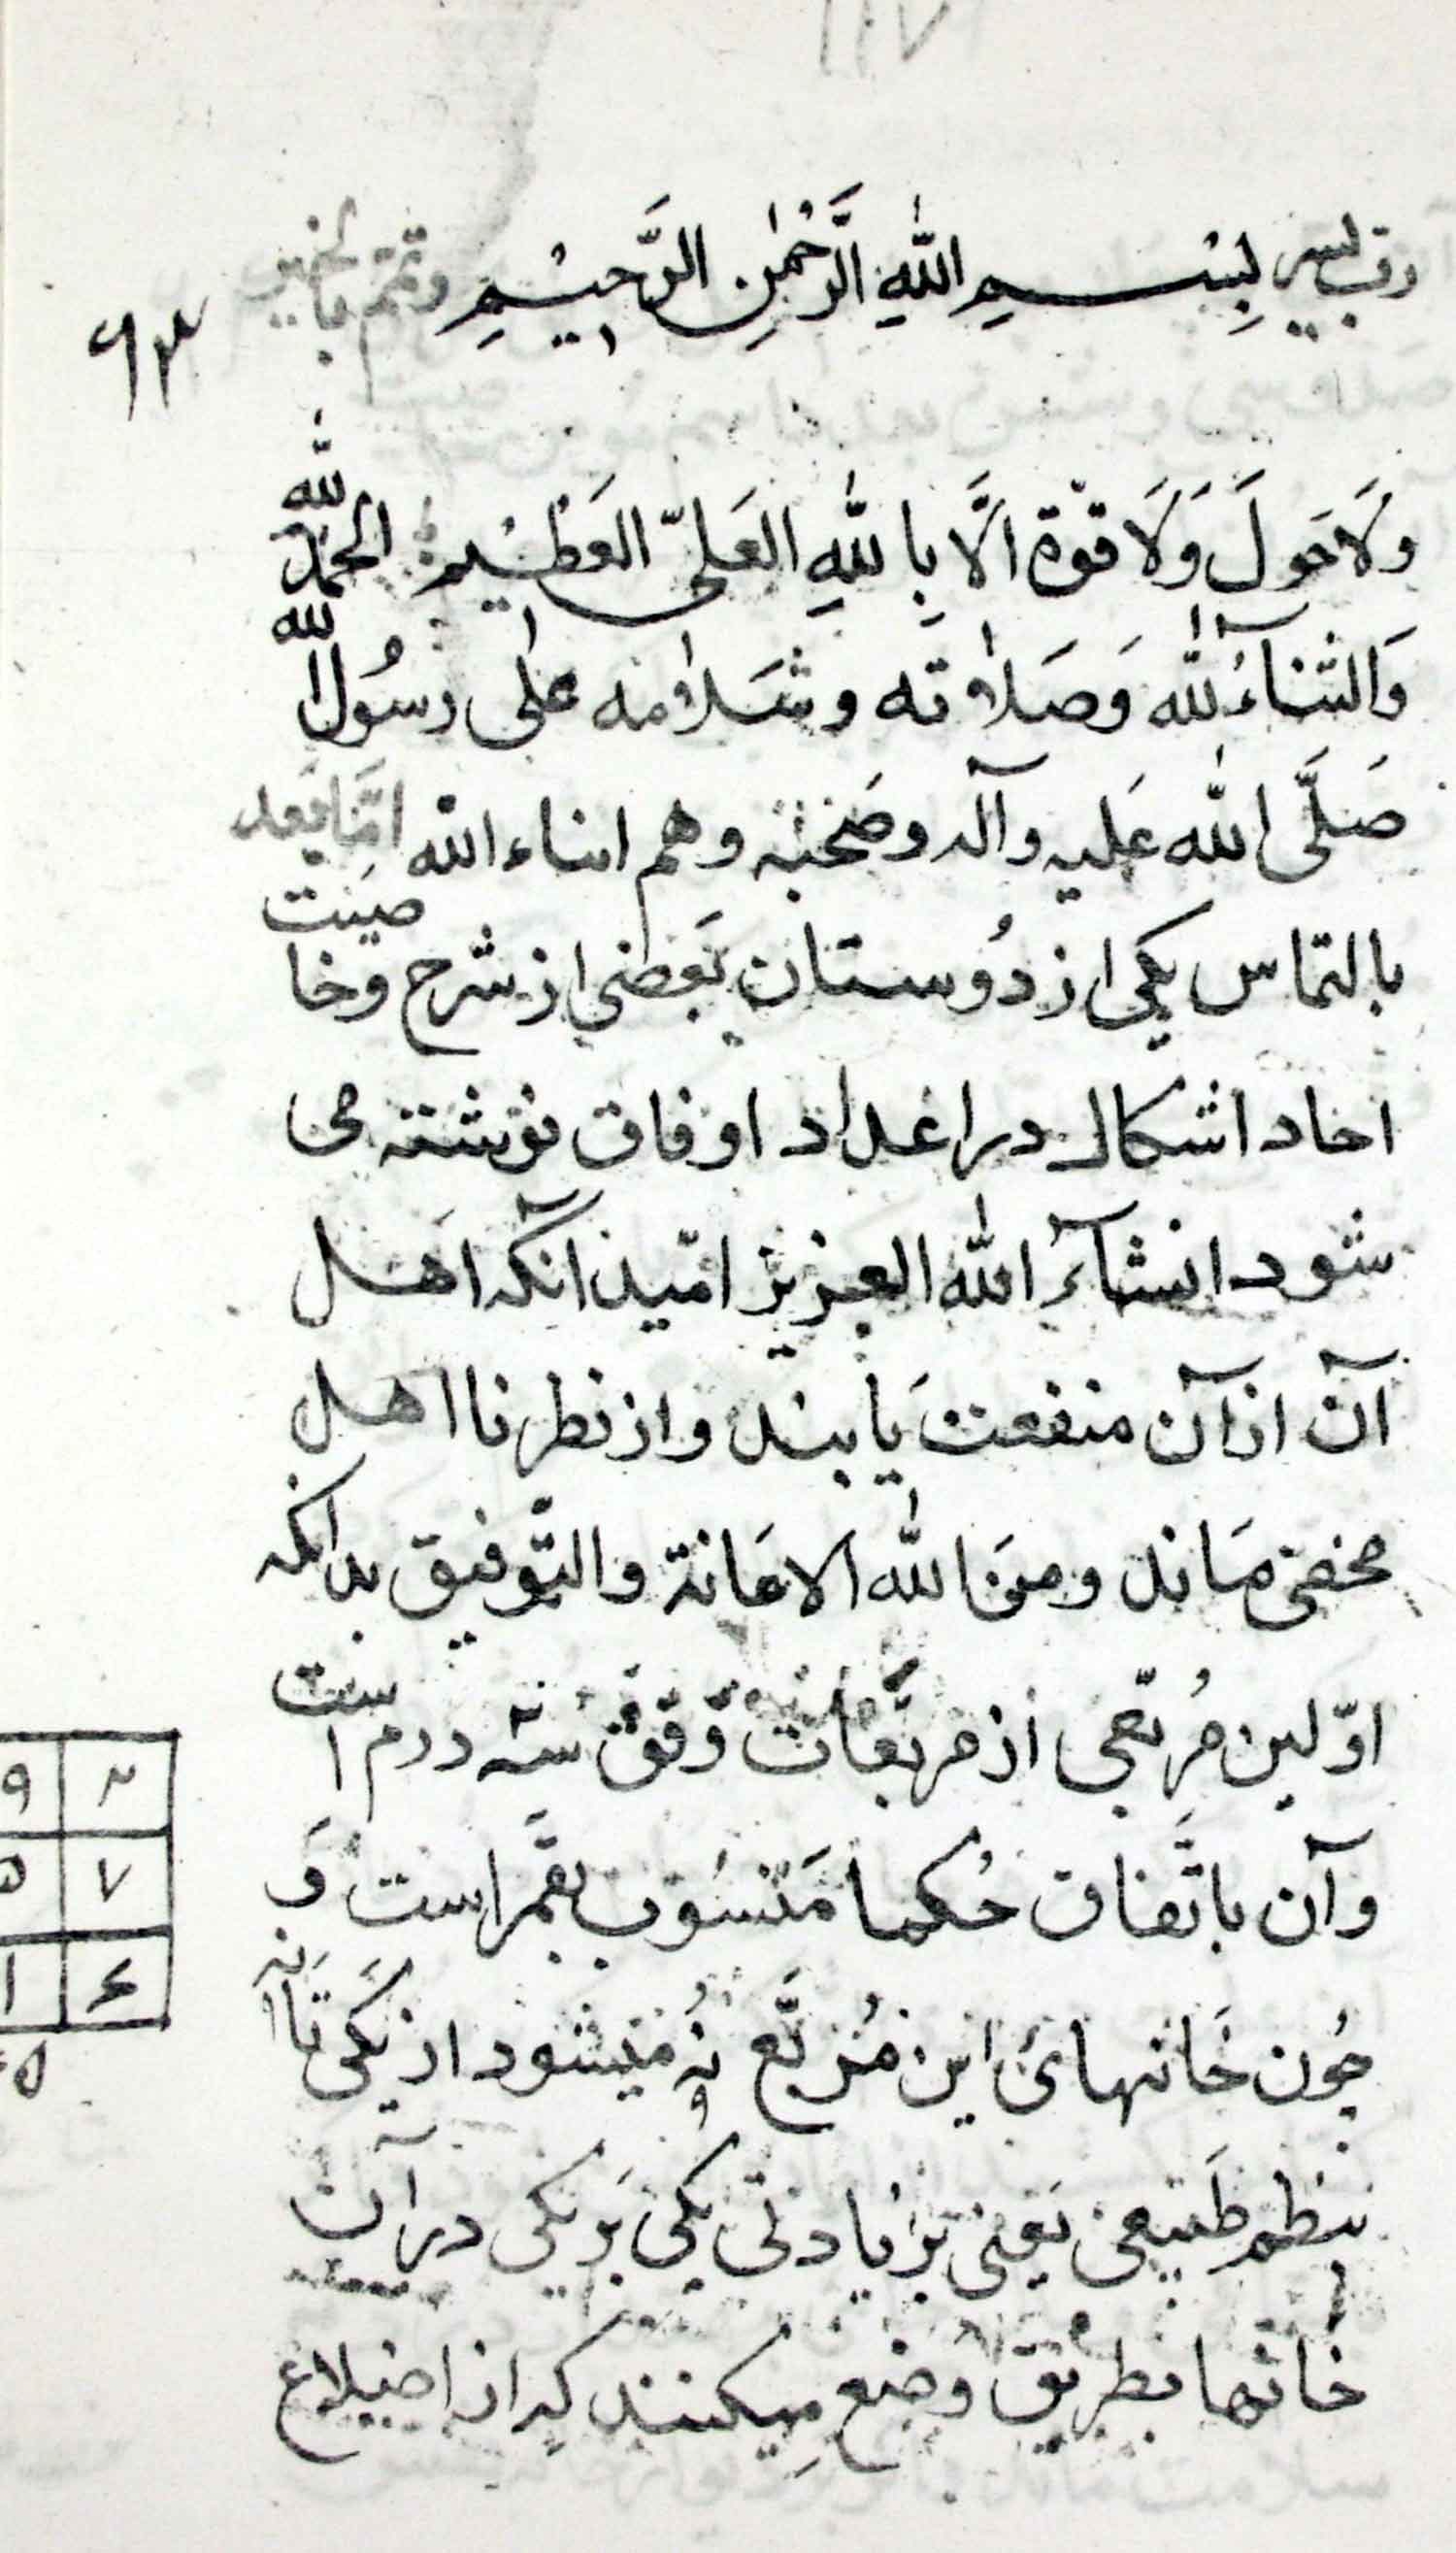 رب یسر بِسْمِ اللهِ الرَّحْمٰنِ الرَّحِیْمِ وتمم بالخیر
۶۳
وَلَا حَولَ وَلَا قوّة اِلَّا بِاللهِ العَلیّ العَظیْم الحمد لله
وَالثناءُ لله وَصَلاته وسَلامه علی رسُول الله
صَلَّی الله عَلیه وآله وصَحبه وهم امناء الله امّا بَعد
بالتماس یکی از دُوستان بَعضی از شرح وخاصیت
احاد اشکال در اعداد اوفاق نوشته می
شود انشآء الله العزیز امّید آنکه اهَل
آن از آن منفعت یَابند واز نظر نا اهل
مخفی مَاند ومنَ الله الاعَانة والتّوفیق بدانکه
اوّلین مُربّعی از مربّعات وَفق سَه در سه است
وآن باتّفاق حُکما مَنسُوب بقمَر است وَ
چُون خَانهای این مُربَّع نُه میشود از یَکی تا نه
۹
بنظم طَبیعی یَعنی بزیادتی یکی بَر یکی در آن
خانها بطریق وضع مِیکنند که از اضلاع
۲ ۹
۷ ۵
۶ ۱